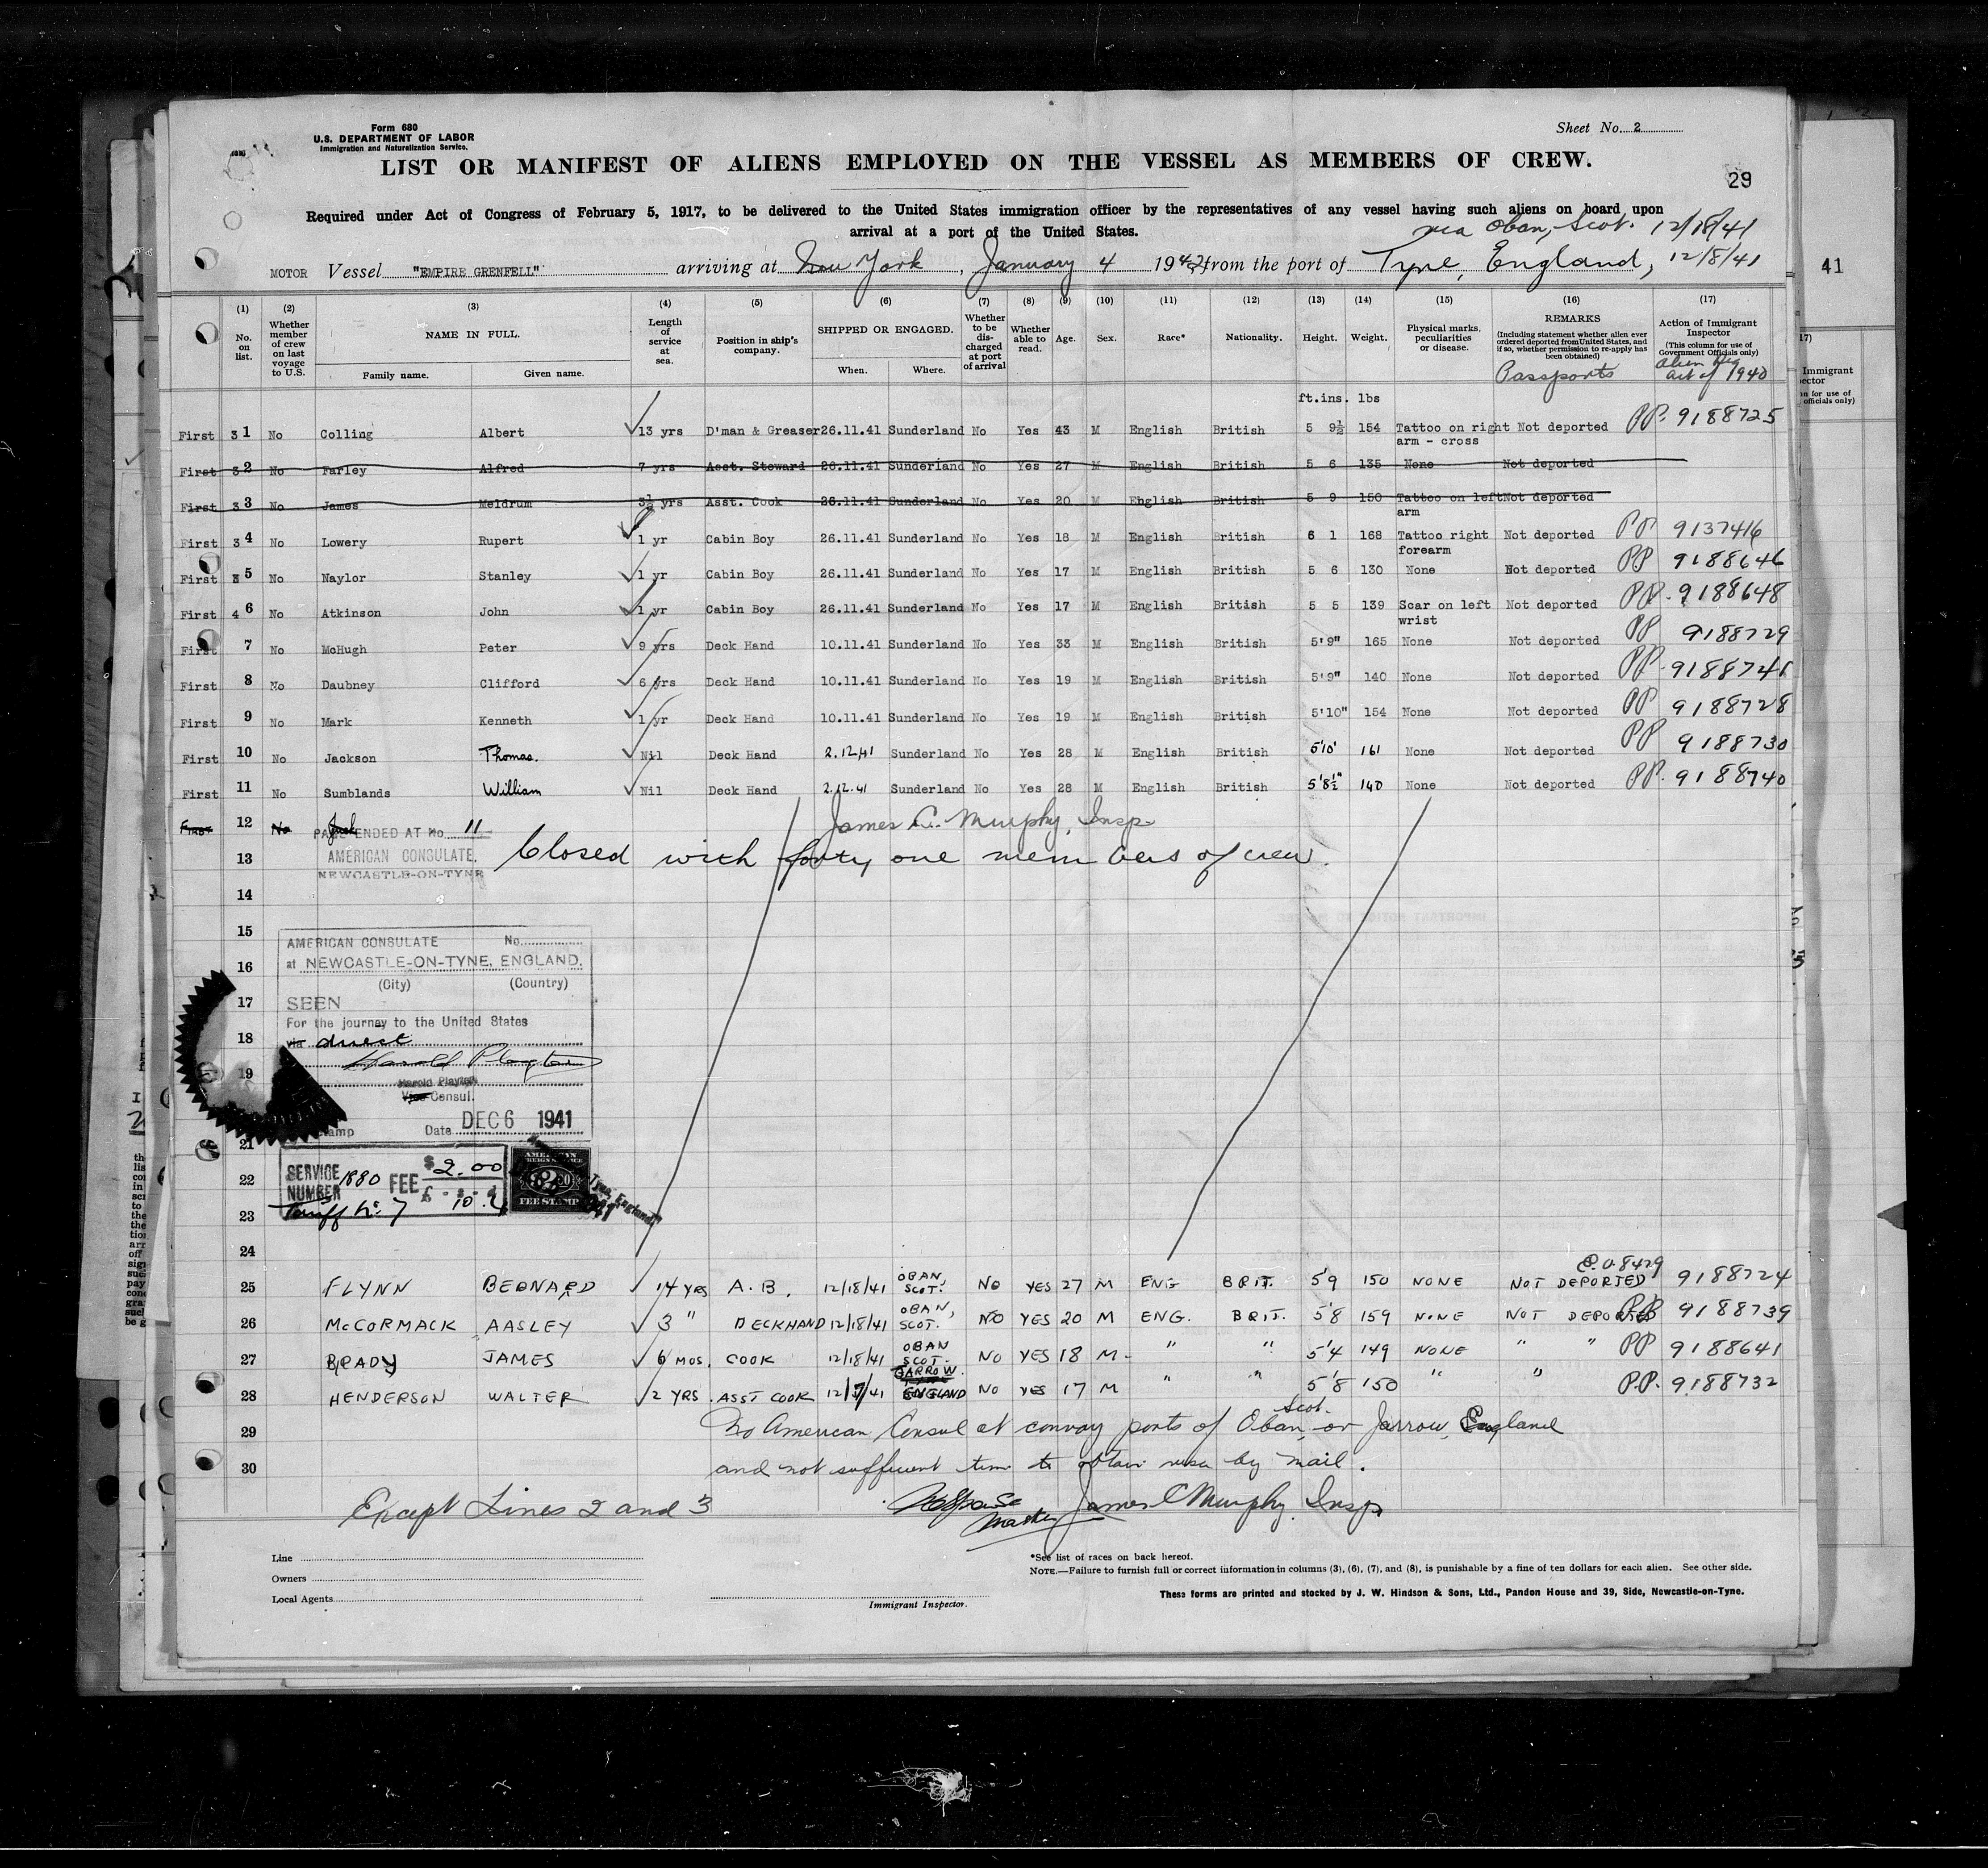 Form 680
U.S. DEPARTMENT OF LABOR
Immigration and Naturalization Service.
Sheet No. 2
LIST OR MANIFEST OF ALIENS EMPLOYED ON THE VESSEL AS MEMBERS OF CREW.
29
Required under Act of Congress of February 5, 1917, to be delivered to the United States immigration officer by the representatives of any vessel having such aliens on board upon
arrival at a port of the United States.
via Oban, Scot. 12/18/41
MOTOR Vessel "EMPIRE GRENFELL" arriving at New York, January 4 1942 from the port of Tyne, England, 12/8/41
41
(1) (2) (3) (4) (5) (6) (7) (8) (9) (10) (11) (12) (13) (14) (15) (16) (17)
No. on list. Whether member of crew on last voyage to U.S. NAME IN FULL. Family name. Given name. Length of service at sea. Position in ship's company. SHIPPED OR ENGAGED. When. Where. Whether to be discharged at port of arrival Whether able to read. Age. Sex. Race* Nationality. Height. Weight. Physical marks, peculiarities or disease. REMARKS (Including statement whether alien ever ordered deported from United States, and if so, whether permission to re-apply has been obtained) Passports Action of Immigrant Inspector (This column for use of Government Officials only) Alien Reg Act of 1940
ft.ins. lbs
First 31 No Colling Albert 13 yrs D'man & Greaser 26.11.41 Sunderland No Yes 43 M English British 5 9½ 154 Tattoo on right arm - cross Not deported PP. 9188725
First 32 No Farley Alfred 7 yrs Asst. Steward 26.11.41 Sunderland No Yes 27 M English British 5 6 135 None Not deported
First 33 No James Meldrum 3½ yrs Asst. Cook 26.11.41 Sunderland No Yes 20 M English British 5 9 150 Tattoo on left arm Not deported
First 34 No Lowery Rupert 1 yr Cabin Boy 26.11.41 Sunderland No Yes 18 M English British 6 1 168 Tattoo right forearm Not deported PP 9137416
First 35 No Naylor Stanley 1 yr Cabin Boy 26.11.41 Sunderland No Yes 17 M English British 5 6 130 None Not deported PP 9188646
First 46 No Atkinson John 1 yr Cabin Boy 26.11.41 Sunderland No Yes 17 M English British 5 5 139 Scar on left wrist Not deported PP. 9188648
First 7 No McHugh Peter 9 yrs Deck Hand 10.11.41 Sunderland No Yes 33 M English British 5'9" 165 None Not deported PP 9188729
First 8 No Daubney Clifford 6 yrs Deck Hand 10.11.41 Sunderland No Yes 19 M English British 5'9" 140 None Not deported PP.
First 9 No Mark Kenneth 1 yr Deck Hand 10.11.41 Sunderland No Yes 19 M English British 5'10" 154 None Not deported PP 9188728
First 10 No Jackson Thomas. Nil Deck Hand 2.12.41 Sunderland No Yes 28 M English British 5'10" 161 None Not deported PP 9188730
First 11 No Sumblands William Nil Deck Hand 2.12.41 Sunderland No Yes 28 M English British 5'8½" 140 None Not deported PP. 9188740
First 12 No James C. Murphy, Insp
PAGE ENDED AT No. 11
13 AMERICAN CONSULATE, Closed with forty one members of crew.
NEWCASTLE-ON-TYNE
14
15
AMERICAN CONSULATE No.
16
at NEWCASTLE-ON-TYNE, ENGLAND.
(City) (Country)
17
SEEN
For the journey to the United States
18
via direct
Harold Playter
19
Harold Playter
Vice Consul.
Date DEC 6 1941
21
22
SERVICE NUMBER 1880 FEE $ 2.00
£ - s - d
Tariff No. 7
AMERICAN FOREIGN SERVICE FEE STAMP
Tyne, England
23
24
25 FLYNN BERNARD 14 YRS A.B. 12/18/41 OBAN, SCOT. NO YES 27 M ENG BRIT. 5'9 150 NONE NOT DEPORTED 9188724
26 McCORMACK AASLEY 3 " DECKHAND 12/18/41 OBAN, SCOT. NO YES 20 M ENG. BRIT. 5'8 159 NONE NOT DEPORTED PP 9188739
27 BRADY JAMES 6 MOS. COOK 12/18/41 OBAN SCOT. NO YES 18 M " " 5'4 149 NONE " " PP 9188641
28 HENDERSON WALTER 2 YRS. ASST COOK 12/7/41 JARROW ENGLAND NO YES 17 M " " 5'8 150 " " P.P. 9188732
29 No American Consul at convoy ports of Oban, Scot. or Jarrow, England
30 and not sufficient time to obtain visa by mail.
Except Lines 2 and 3 Master James C Murphy, Insp
Line
Owners
Local Agents
Immigrant Inspector.
*See list of races on back hereof.
NOTE.—Failure to furnish full or correct information in columns (3), (6), (7), and (8), is punishable by a fine of ten dollars for each alien. See other side.
These forms are printed and stocked by J. W. Hindson & Sons, Ltd., Pandon House and 39, Side, Newcastle-on-Tyne.